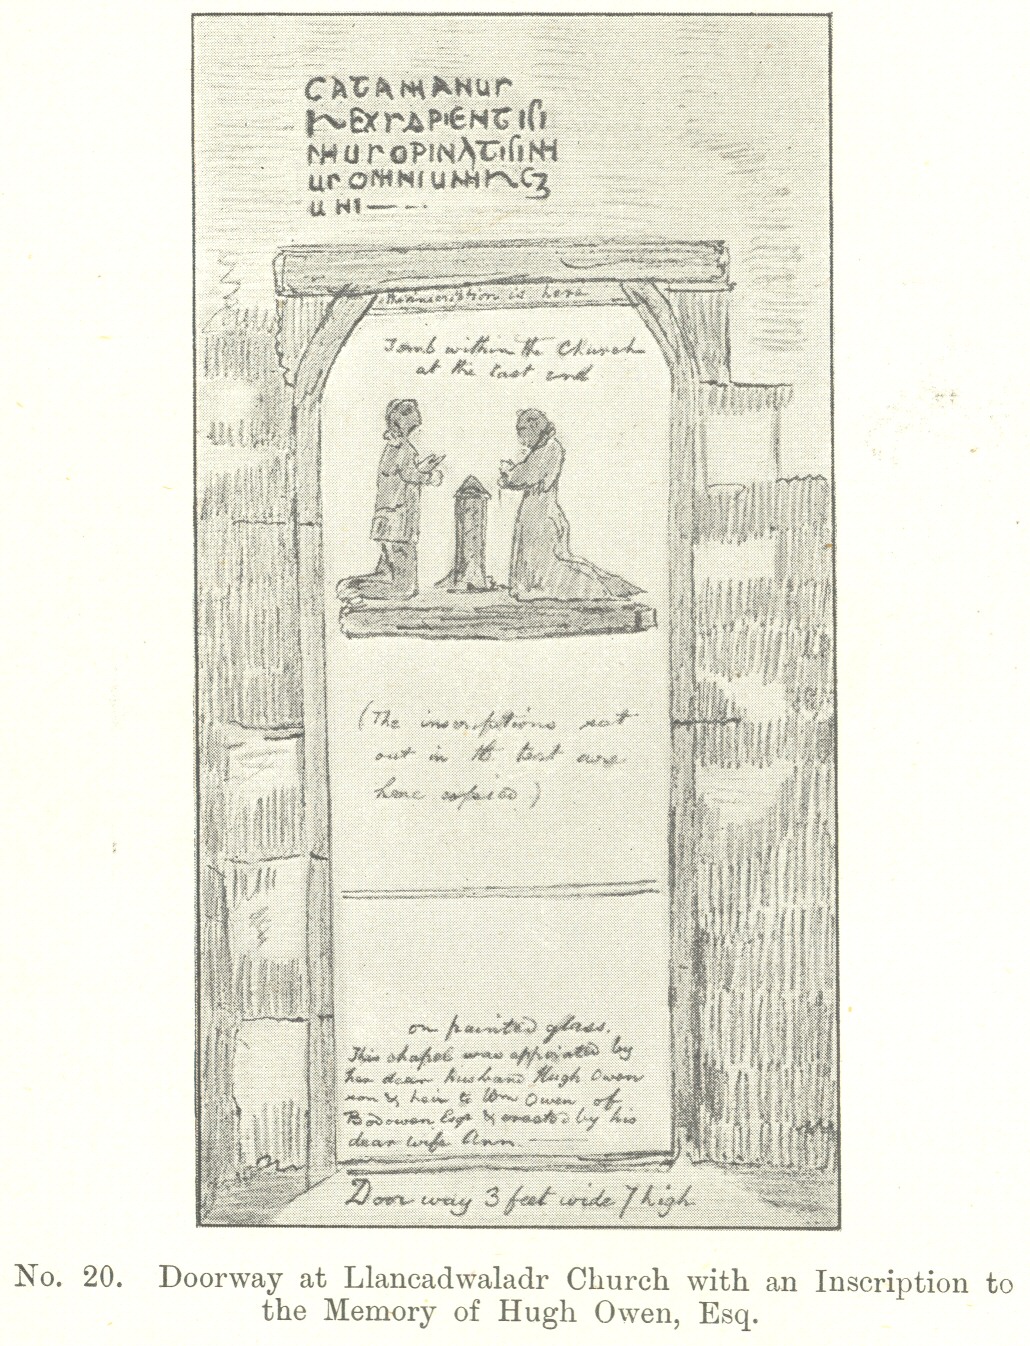 CATAMANUS
REXSAPIENTISI
MUSOPINATISIM
USOMNIUMREG
UM — - -
This inscription is here
Tomb within the Church
at the East end
(The inscriptions set
out in the text are
here copied)
on painted glass.
This chapel was appointed by
her dear husband Hugh Owen
son & heir to Wm Owen of
Bodowen Esqr & erected by his
dear wife Ann.
Door way 3 feet wide 7 high
No. 20. Doorway at Llancadwaladr Church with an Inscription to
the Memory of Hugh Owen, Esq.